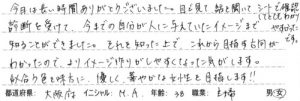 今日は長い時間ありがとうございました。目で見て、話を聞いて、シートで確認してとてもわかりやすかったです。
診断を受けて、今までの自分が人に与えていたイメージまで
知ることができました。それを知った上で、これから目指す方向が
わかったので、よりイメージ作りがしやすくなった気がします。
外分の色を味方に、優しく、華やかな女性を目指します!!
都道府県: 大阪府 イニシャル: M.A. 年齢: 38 職業: 主婦 男・女